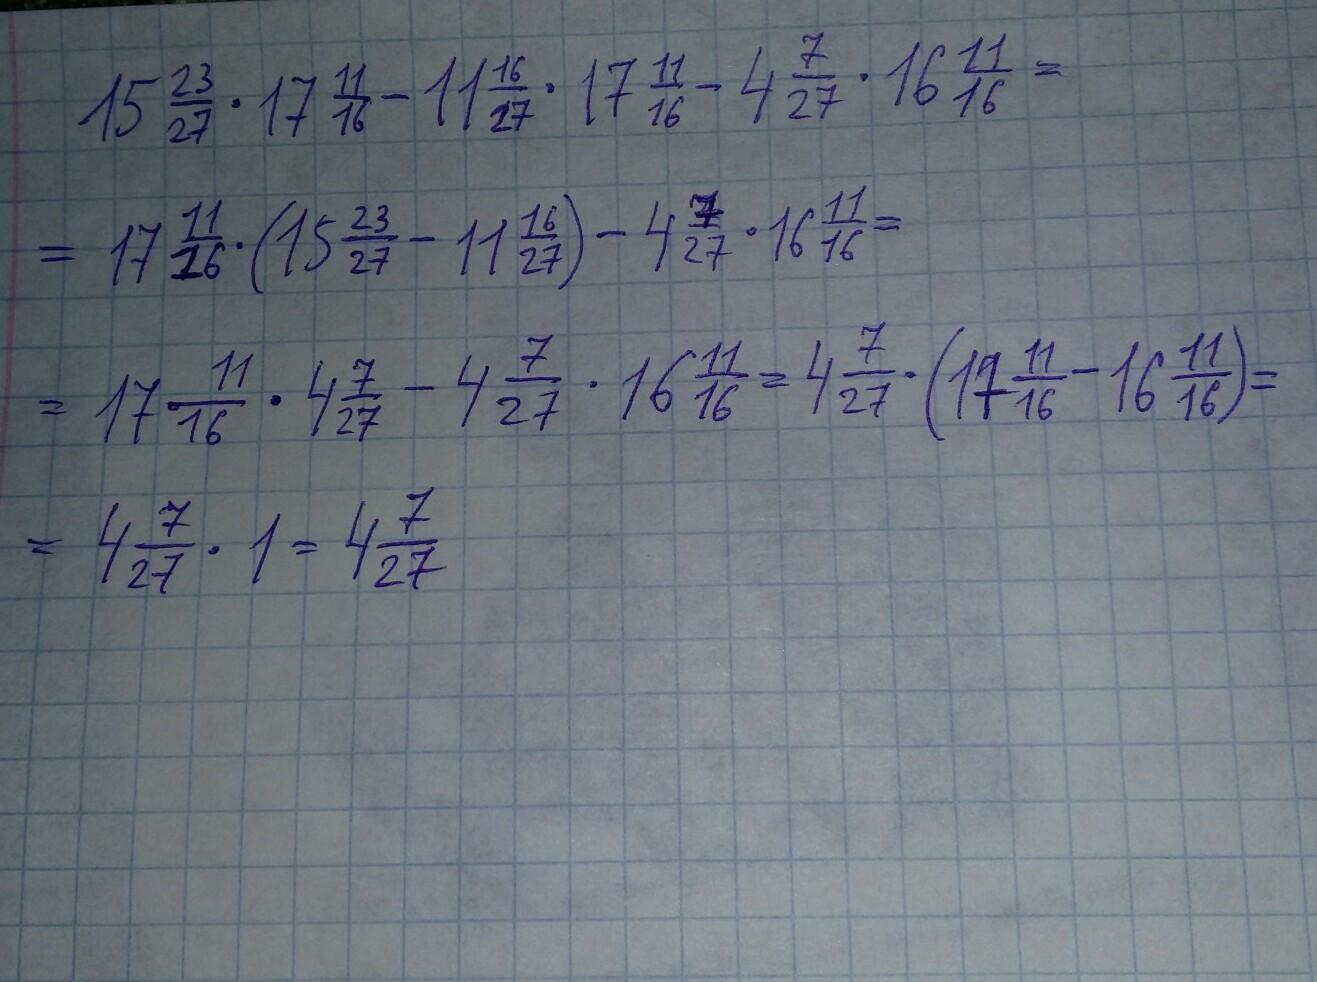 15 23/27 · 17 11/16 - 11 16/27 · 17 11/16 - 4 7/27 · 16 11/16 =
= 17 11/16 · (15 23/27 - 11 16/27) - 4 7/27 · 16 11/16 =
= 17 11/16 · 4 7/27 - 4 7/27 · 16 11/16 = 4 7/27 · (17 11/16 - 16 11/16) =
= 4 7/27 · 1 = 4 7/27